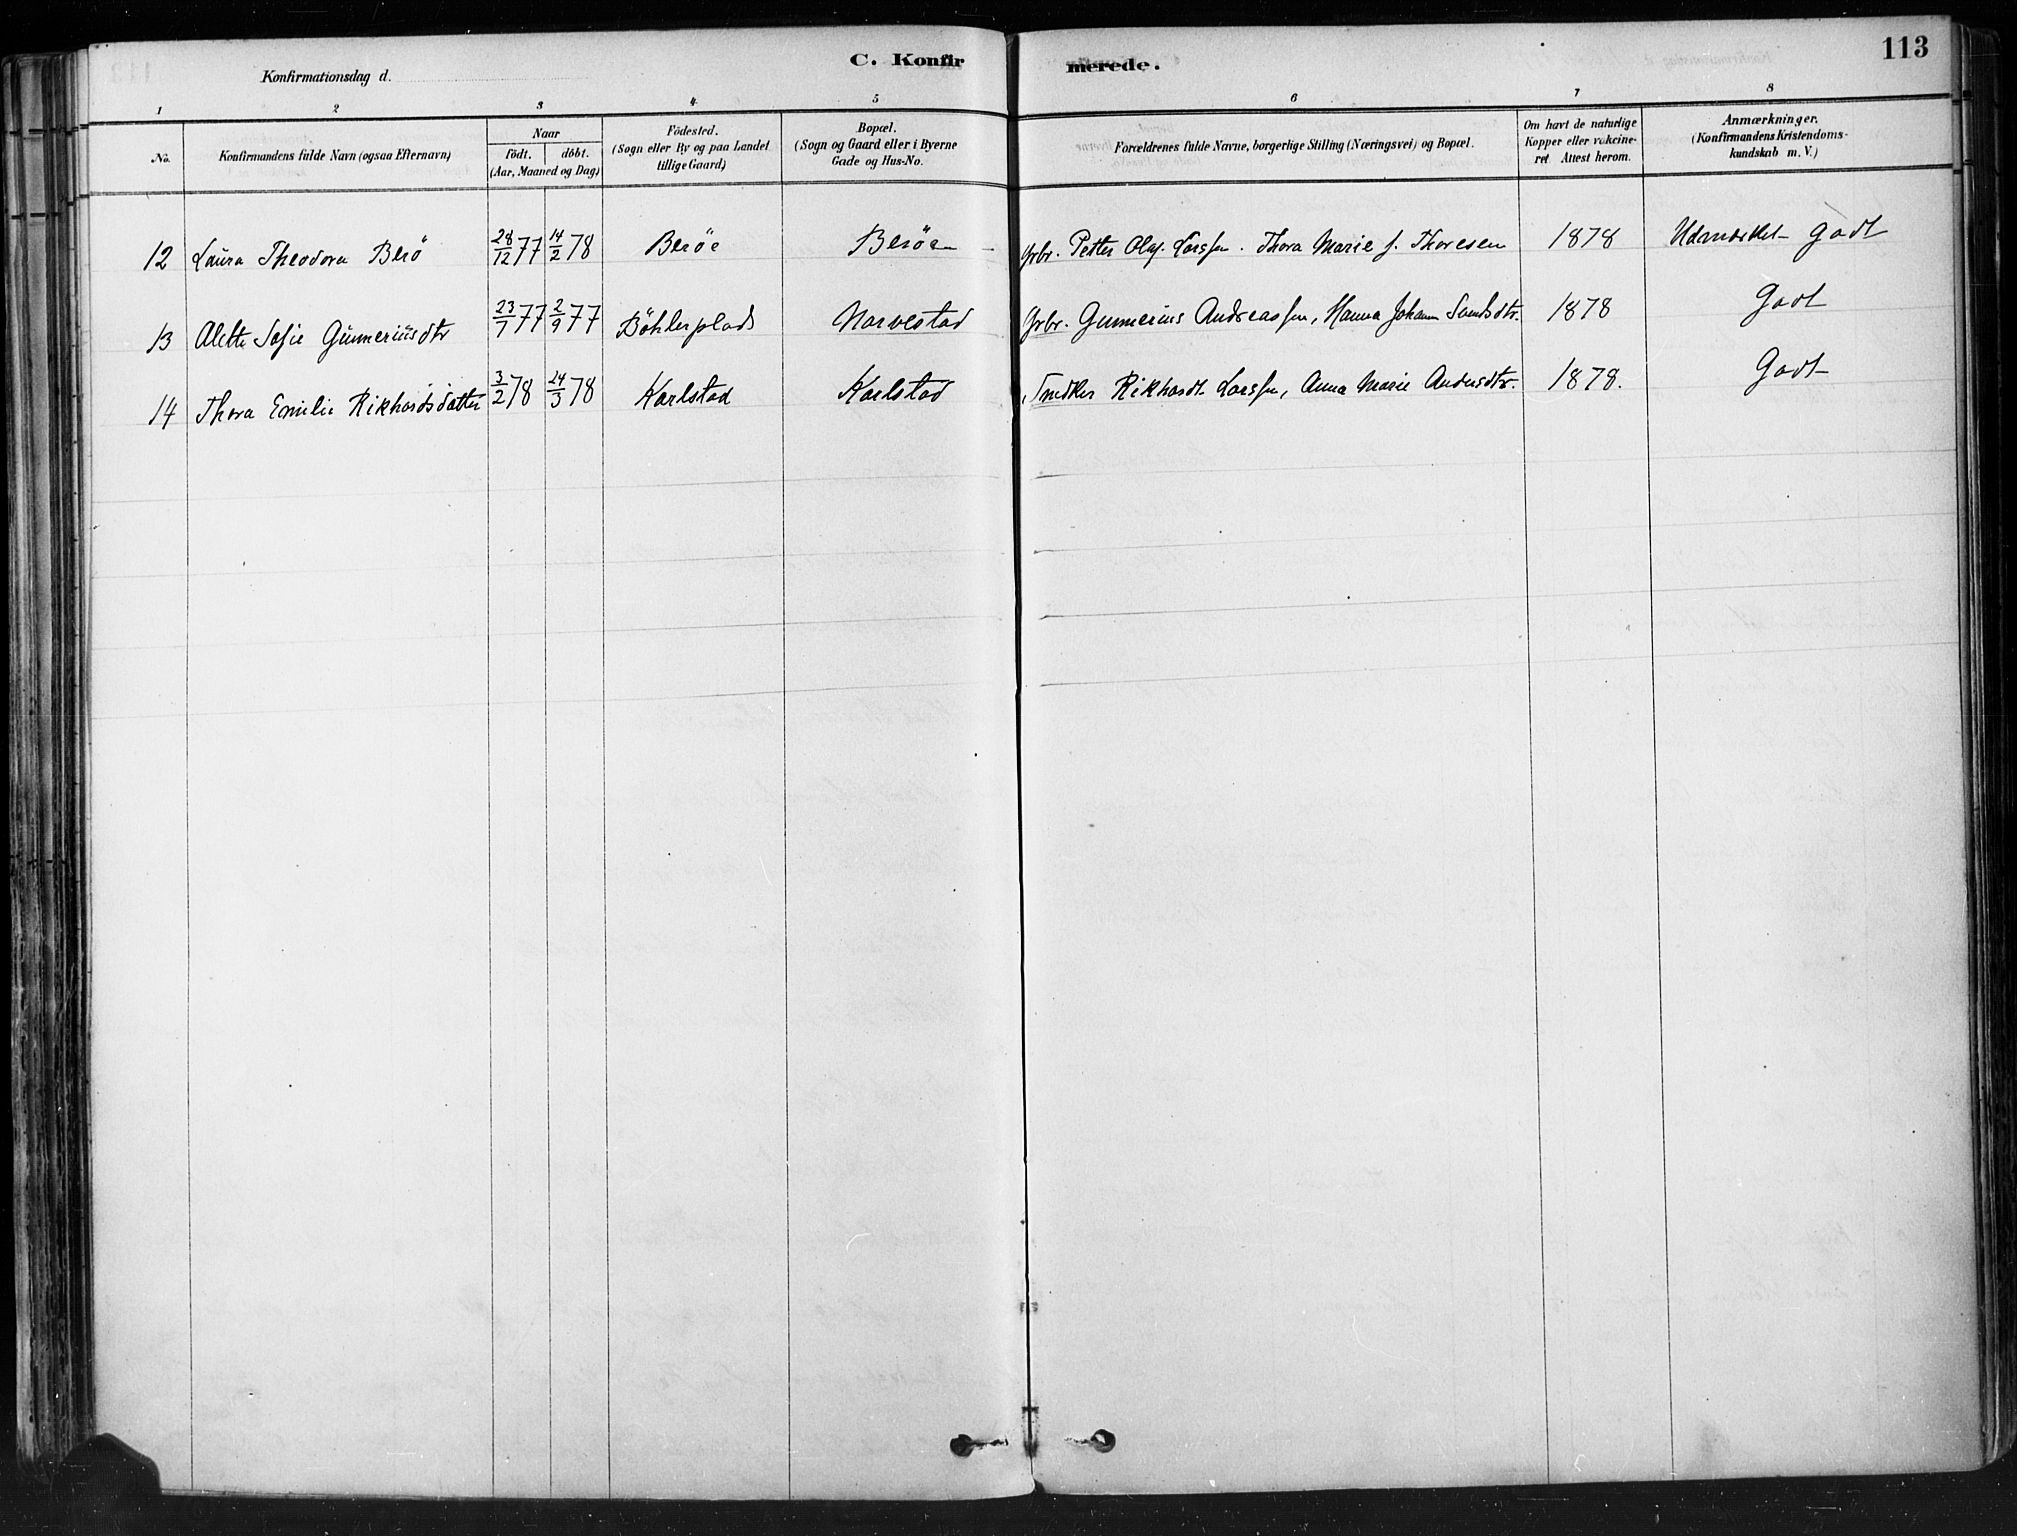 C. Konfirmerede.
113
Konfirmationsdag d.
1 2 3 4 5 6 7 8
No.
Konfirmandens fulde Navn (ogsaa Efternavn)
Naar
födt. döbt.
(Aar, Maaned og Dag)
Födested.
(Sogn eller By og paa Landet
tillige Gaard)
Bopæl.
(Sogn og Gaard eller i Byerne
Gade og Hus-No.
Forældrenes fulde Navne, borgerlige Stilling (Næringsvei) og Bopæl.
Om havt de naturlige
Kopper eller vakcine-
ret. Attest herom.
Anmærkninger.
(Konfirmandens Kristendoms-
kundskab m. V.)
12 Laura Theodora Berö 28/12 77 14/2 78 Beröe Beröen Grbr. Petter Olaf Larssen. Thora Marie f. Thoresen 1878 Udmærket godt
13 Alette Sofie Gunneriusdtr 23/7 77 2/9 77 Böhlerplads Narvestad Grbr. Gunnerius Andreassen, Hanna Johann Svendsdtr. 1878 Godt
14 Thora Emilie Rikhardsdatter 3/2 78 24/3 78 Karlstad Karlstad Snedker Rikhardt Larssen, Anna Marie Andersdtr. 1878. Godt